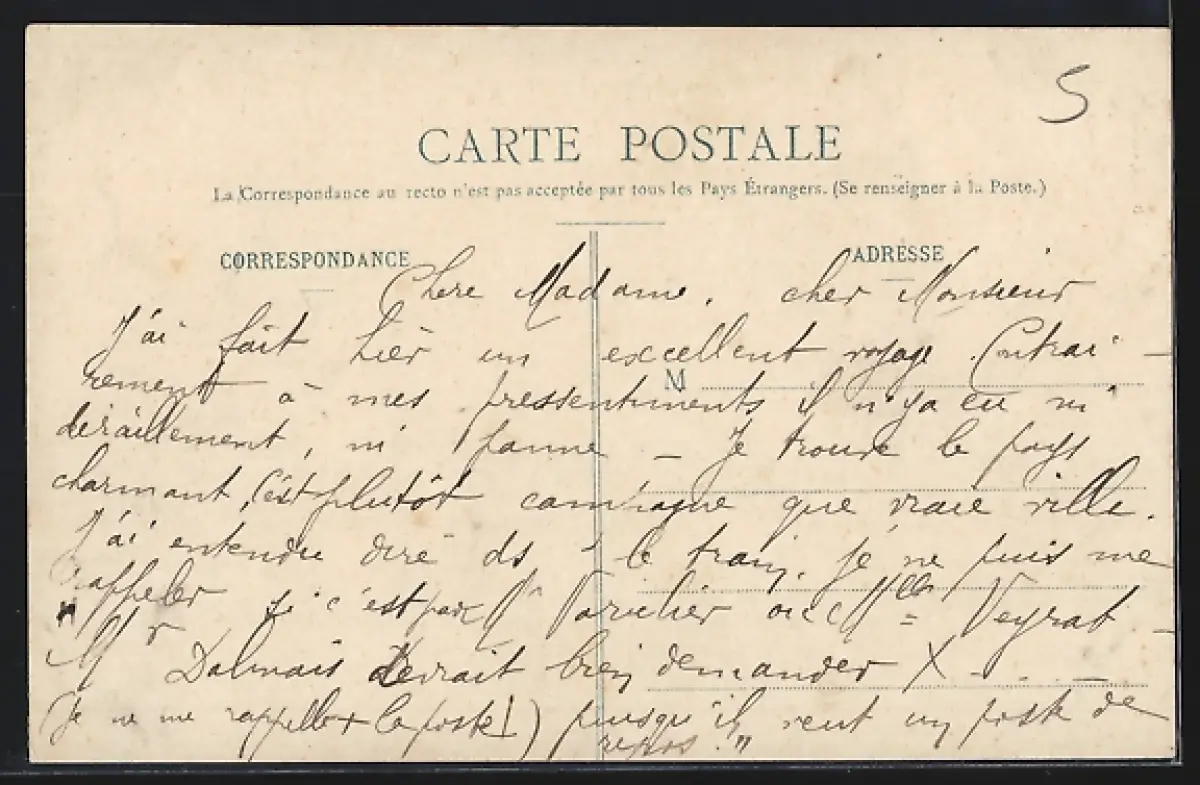 5
CARTE POSTALE
La Correspondance au recto n'est pas acceptée par tous les Pays Étrangers. (Se renseigner à la Poste.)
CORRESPONDANCE
ADRESSE
M
Chere Madame, cher Monsieur
J'ai fait hier un excellent voyage. Contrai-
rement à mes pressentiments il n'y a eu ni
déraillement, ni panne – Je trouve le pays
charmant, c'est plutôt campagne que vraie ville.
J'ai entendu dire ds le train, je ne puis me
rappeler si c'est par Mr ou Mlle Veyrat –
"Mr Dalmais devrait bien demander X - . . .
(je ne me rappelle + le poste!) puisqu'il veut un poste de
repos."